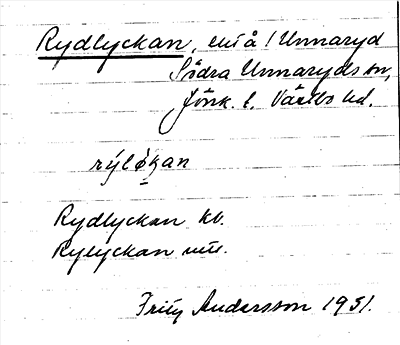 Rydlyckan, utå / Unnaryd
Södra Unnaryds sn,
Jönk. l. Västbo hd.
rýlø̀kan
Rydlyckan kb.
Rylyckan
Fritz Andersson 1951.